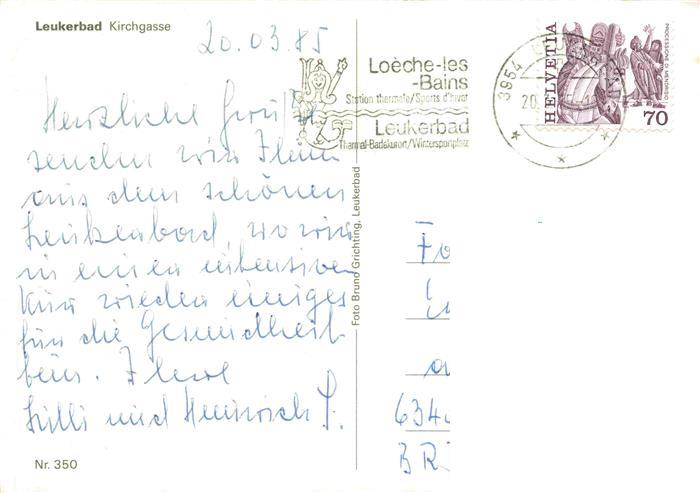 Leukerbad Kirchgasse
20.03.85
Loèche-les
-Bains
Station thermale/Sports d'hiver
Leukerbad
Thermal-Badekurort/Wintersportplatz
3954
20.
HELVETIA
PROCESSIONE DI MENDRISIO
70
Herzliche Grüße
senden wir Ihnen
aus dem schönen
Leukerbad, wo wir
in einer intensiven
Kur wieder einiges
für die Gesundheit
tun. Ihre
Lilli und Heinrich S.
Foto Bruno Grichting, Leukerbad
Fo
a
634
BRI
Nr. 350